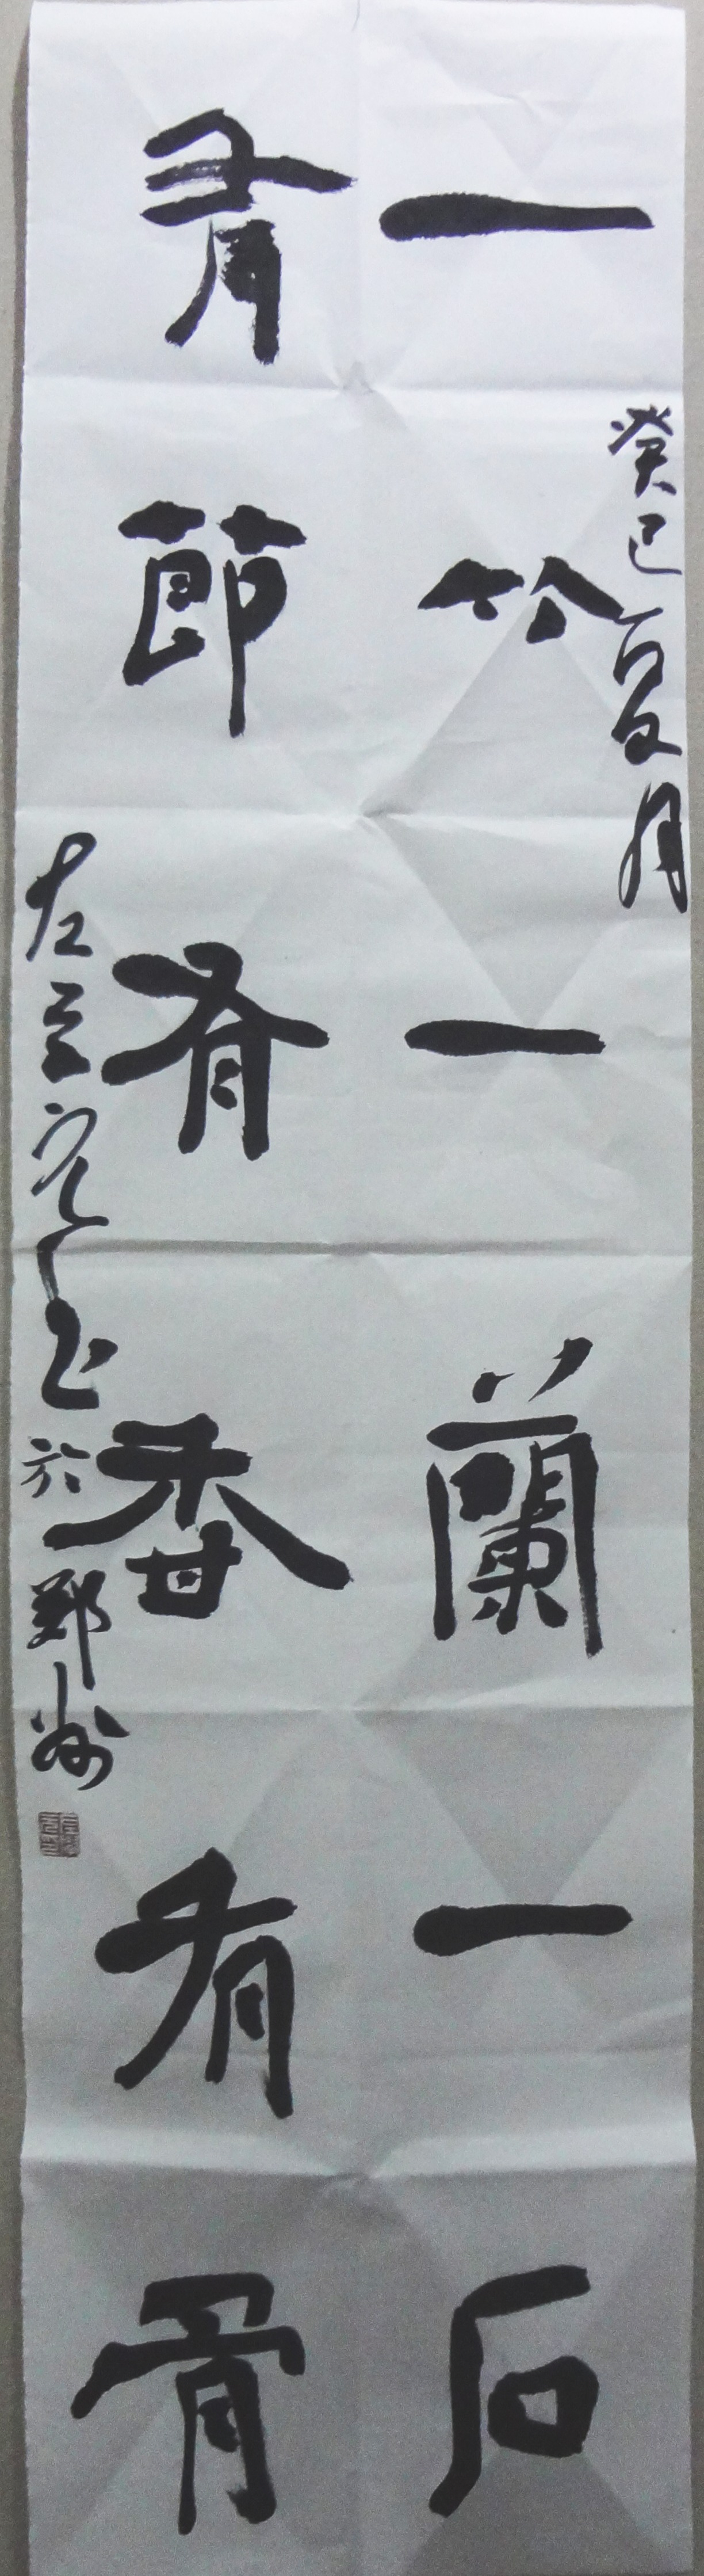 一竹一蘭一石
有節有香有骨
癸巳夏月
左
書於鄭州